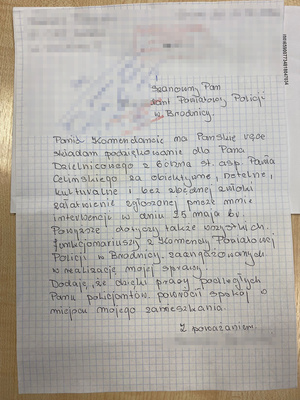 Szanowny Pan
Kom. Powiatowy Policji
w Brodnicy.
Panie Komendancie na Pańskie ręce
składam podziękowanie dla Pana
Dzielnicowego z Bobrowa st. asp. Pawła
Celińskiego za obiektywne, rzetelne,
kulturalne i bez zbędnej zwłoki
załatwienie zgłoszonej przeze mnie
interwencji w dniu 25 maja br.
Powyższe dotyczy także wszystkich
funkcjonariuszy z Komendy Powiatowej
Policji w Brodnicy zaangażowanych
w realizację mojej sprawy.
Dodaję, że dzięki pracy podległych
Panu policjantów powrócił spokój w
miejscu mojego zamieszkania.
Z poważaniem.